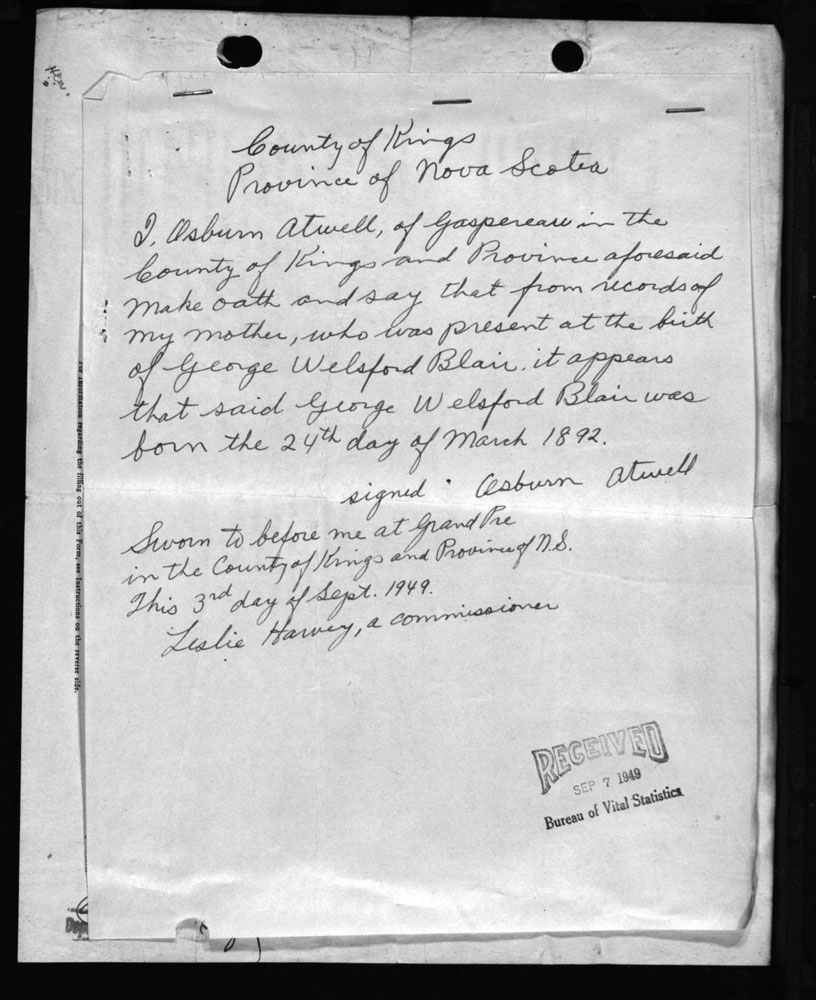 County of Kings
Province of Nova Scotia
I, Osburn Atwell, of Gaspereau in the
County of Kings and Province aforesaid
make oath and say that from records of
my mother, who was present at the birth
of George Welsford Blair, it appears
that said George Welsford Blair was
born the 24th day of March 1892.
signed · Osburn Atwell
Sworn to before me at Grand Pre
in the County of Kings and Province of N.S.
This 3rd day of Sept. 1949.
Leslie Harvey, a commissioner
RECEIVED
SEP 7 1949
Bureau of Vital Statistics
For information regarding the filling out of this Form, see Instructions on the reverse side.